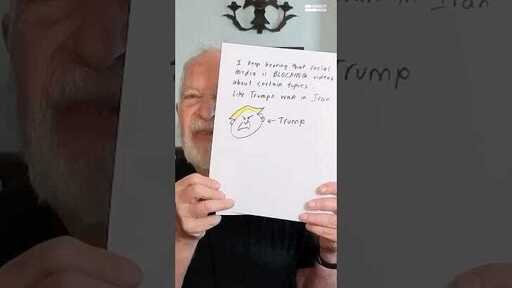 I keep hearing that social
media is BLOCKING videos
about certain topics
Like Trumps war in Iran
← Trump